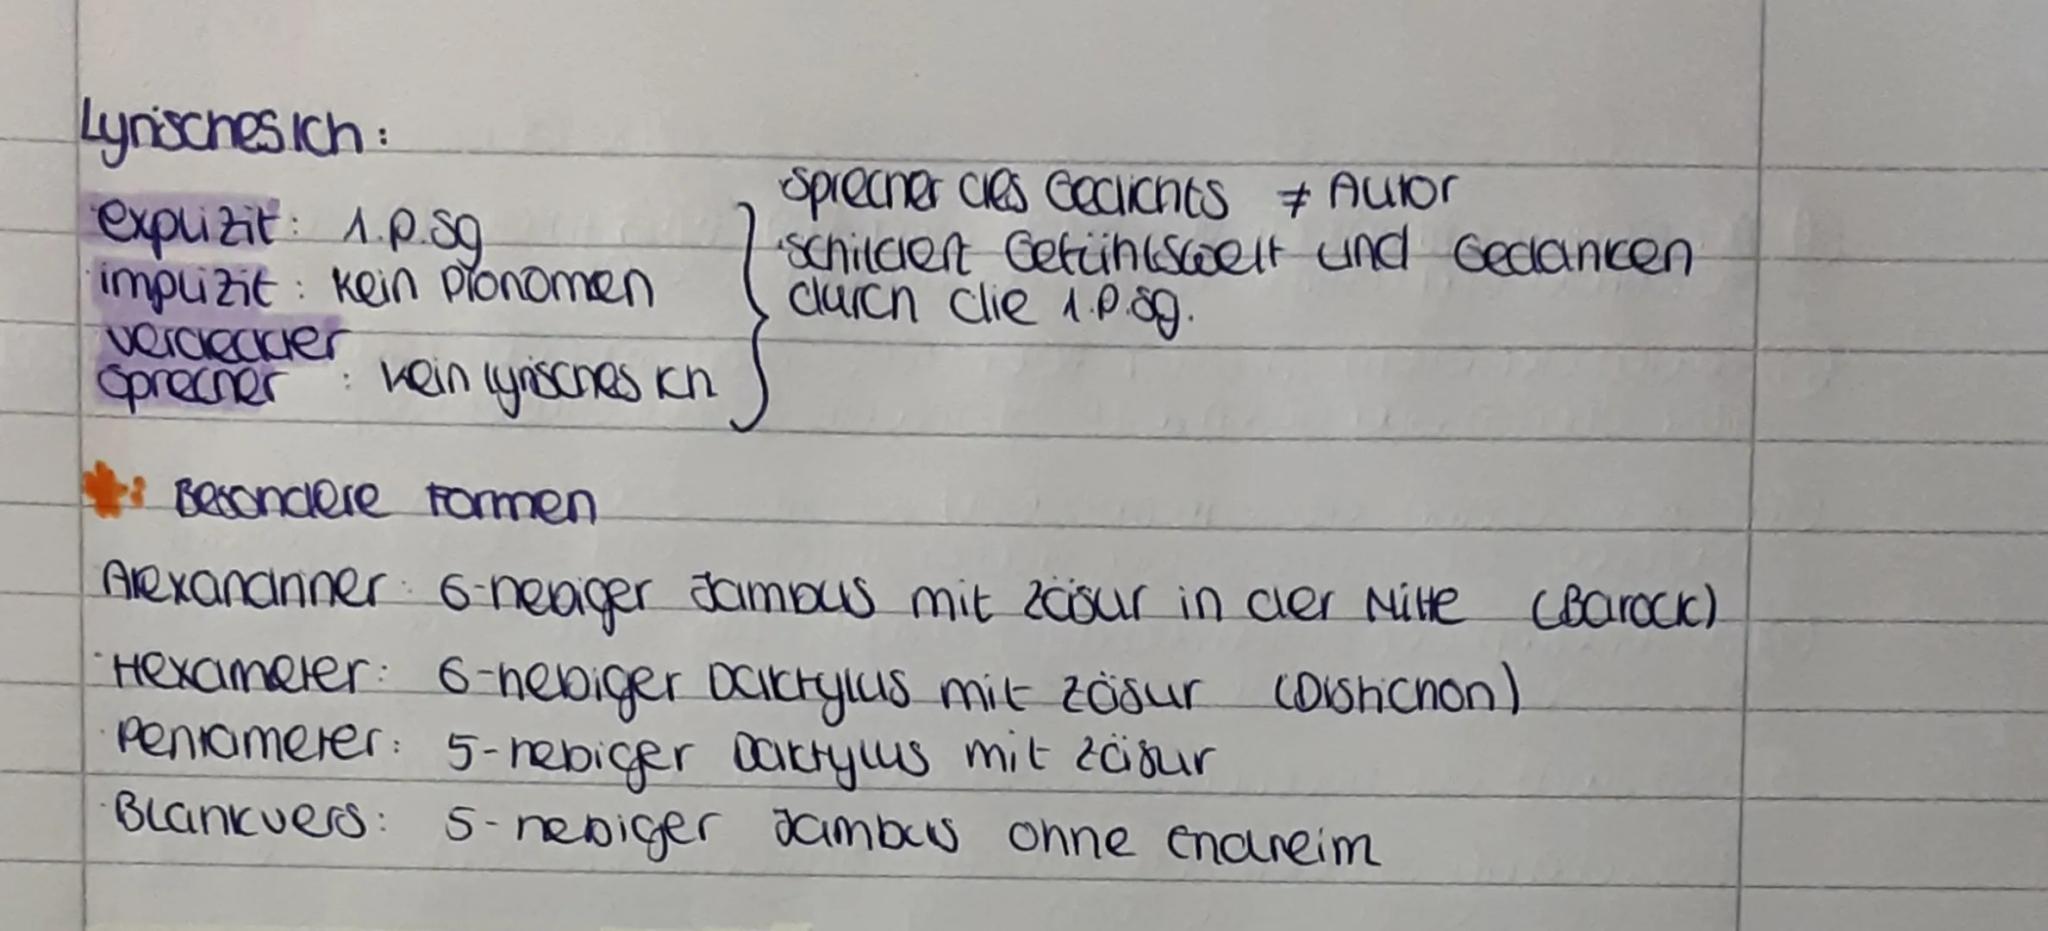 Lyrisches Ich:
explizit: 1.P.Sg
implizit: kein Pronomen
verdeckter
Sprecher : kein lyrisches Ich
Sprecher des Gedichts ≠ Autor
schildert Gefühlswelt und Gedanken
durch die 1.P.Sg.
*: Besondere Formen
Alexandriner: 6-hebiger Jambus mit Zäsur in der Mitte (Barock)
Hexameter: 6-hebiger Daktylus mit Zäsur (Distichon)
Pentameter: 5-hebiger Daktylus mit Zäsur
Blankvers: 5-hebiger Jambus ohne Endreim